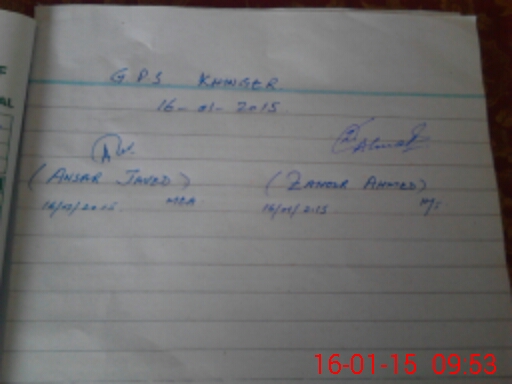 G P S KHINGER
16-01-2015
(ANSAR JAVED) (ZAHOOR AHMED)
16/01/2015 MEA 16/01/2015
AL
16-01-15 09:53